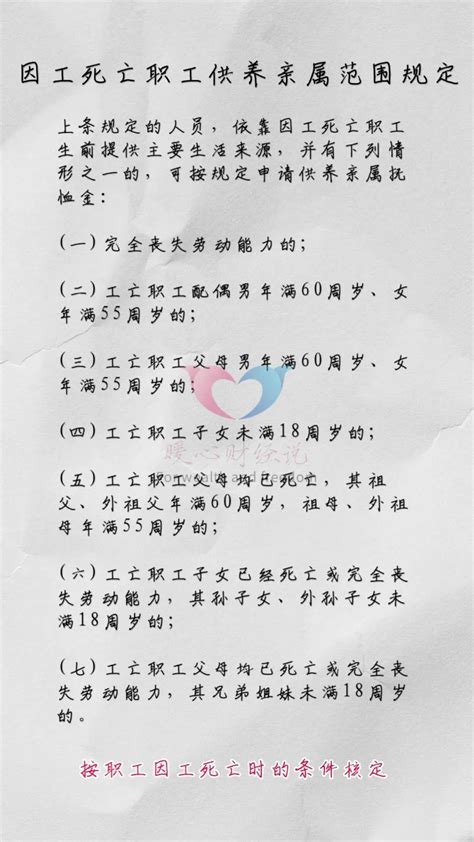 因工死亡职工供养亲属范围规定
上条规定的人员，依靠因工死亡职工
生前提供主要生活来源，并有下列情
形之一的，可按规定申请供养亲属抚
恤金：
(一)完全丧失劳动能力的；
(二)工亡职工配偶男年满60周岁、女
年满55周岁的；
(三)工亡职工父母男年满60周岁、女
年满55周岁的；
(四)工亡职工子女未满18周岁的；
暖心财经说
(五)工亡职工父母均已死亡，其祖
For wealth and freedom
父、外祖父年满60周岁，祖母、外祖
母年满55周岁的；
(六)工亡职工子女已经死亡或完全丧
失劳动能力，其孙子女、外孙子女未
满18周岁的；
(七)工亡职工父母均已死亡或完全丧
失劳动能力，其兄弟姐妹未满18周岁
的。
按职工因工死亡时的条件核定